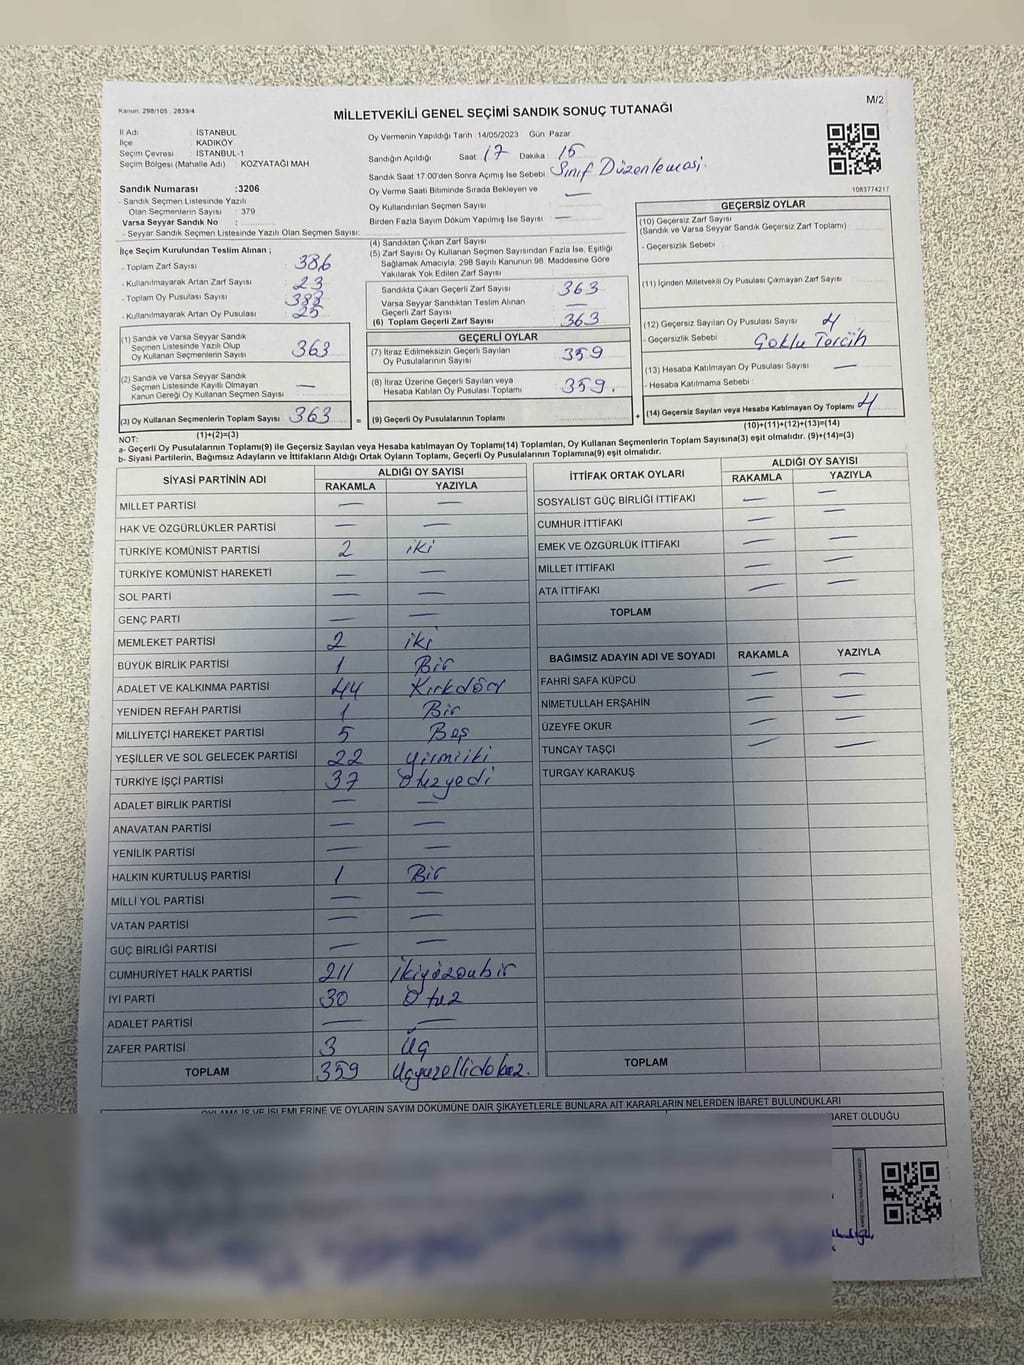 Kanun: 298/105 , 2839/4
M/2
MİLLETVEKİLİ GENEL SEÇİMİ SANDIK SONUÇ TUTANAĞI
İl Adı : İSTANBUL
İlçe : KADIKÖY
Seçim Çevresi : İSTANBUL-1
Seçim Bölgesi (Mahalle Adı) : KOZYATAĞI MAH
Sandık Numarası :3206
- Sandık Seçmen Listesinde Yazılı
Olan Seçmenlerin Sayısı : 379
Varsa Seyyar Sandık No :
- Seyyar Sandık Seçmen Listesinde Yazılı Olan Seçmen Sayısı:
Oy Vermenin Yapıldığı Tarih : 14/05/2023 Gün: Pazar
Sandığın Açıldığı Saat: 17 Dakika: 15
Sandık Saat 17:00'den Sonra Açımış İse Sebebi: Sınıf Düzenlemesi.
Oy Verme Saati Bitiminde Sırada Bekleyen ve
Oy Kullandırılan Seçmen Sayısı : —
Birden Fazla Sayım Döküm Yapılmış İse Sayısı : —
1083774217
İlçe Seçim Kurulundan Teslim Alınan ;
- Toplam Zarf Sayısı : 386
- Kullanılmayarak Artan Zarf Sayısı : 23
- Toplam Oy Pusulası Sayısı : 388
- Kullanılmayarak Artan Oy Pusulası : 25
(1) Sandık ve Varsa Seyyar Sandık
Seçmen Listesinde Yazılı Olup
Oy Kullanan Seçmenlerin Sayısı : 363
(2) Sandık ve Varsa Seyyar Sandık
Seçmen Listesinde Kayıtlı Olmayan
Kanun Gereği Oy Kullanan Seçmen Sayısı : —
(3) Oy Kullanan Seçmenlerin Toplam Sayısı : 363
(1)+(2)=(3)
(4) Sandıktan Çıkan Zarf Sayısı :
(5) Zarf Sayısı Oy Kullanan Seçmen Sayısından Fazla İse, Eşitliği
Sağlamak Amacıyla, 298 Sayılı Kanunun 98. Maddesine Göre
Yakılarak Yok Edilen Zarf Sayısı :
Sandıkta Çıkan Geçerli Zarf Sayısı : 363
Varsa Seyyar Sandıktan Teslim Alınan
Geçerli Zarf Sayısı : —
(6) Toplam Geçerli Zarf Sayısı : 363
GEÇERLİ OYLAR
(7) İtiraz Edilmeksizin Geçerli Sayılan
Oy Pusulalarının Sayısı : 359
(8) İtiraz Üzerine Geçerli Sayılan veya
Hesaba Katılan Oy Pusulaları Toplamı : 359.
= (9) Geçerli Oy Pusulalarının Toplamı :
GEÇERSİZ OYLAR
(10) Geçersiz Zarf Sayısı :
(Sandık ve Varsa Seyyar Sandık Geçersiz Zarf Toplamı)
- Geçersizlik Sebebi :
(11) İçinden Milletvekili Oy Pusulası Çıkmayan Zarf Sayısı :
(12) Geçersiz Sayılan Oy Pusulası Sayısı : 4
- Geçersizlik Sebebi : Çoklu Tercih
(13) Hesaba Katılmayan Oy Pusulası Sayısı : —
- Hesaba Katılmama Sebebi :
+ (14) Geçersiz Sayılan veya Hesaba Katılmayan Oy Toplamı : 4
(10)+(11)+(12)+(13)=(14)
NOT:
a- Geçerli Oy Pusulalarının Toplamı(9) ile Geçersiz Sayılan veya Hesaba katılmayan Oy Toplamı(14) Toplamları, Oy Kullanan Seçmenlerin Toplam Sayısına(3) eşit olmalıdır. (9)+(14)=(3)
b- Siyasi Partilerin, Bağımsız Adayların ve İttifakların Aldığı Ortak Oyların Toplamı, Geçerli Oy Pusulalarının Toplamına(9) eşit olmalıdır.
SİYASİ PARTİNİN ADI ALDIĞI OY SAYISI
RAKAMLA YAZIYLA
MİLLET PARTİSİ — —
HAK VE ÖZGÜRLÜKLER PARTİSİ — —
TÜRKİYE KOMÜNİST PARTİSİ 2 iki
TÜRKİYE KOMÜNİST HAREKETİ — —
SOL PARTİ — —
GENÇ PARTİ — —
MEMLEKET PARTİSİ 2 iki
BÜYÜK BİRLİK PARTİSİ 1 Bir
ADALET VE KALKINMA PARTİSİ 44 Kırkdört
YENİDEN REFAH PARTİSİ 1 Bir
MİLLİYETÇİ HAREKET PARTİSİ 5 Beş
YEŞİLLER VE SOL GELECEK PARTİSİ 22 Yirmiiki
TÜRKİYE İŞÇİ PARTİSİ 37 Otuzyedi
ADALET BİRLİK PARTİSİ — —
ANAVATAN PARTİSİ — —
YENİLİK PARTİSİ — —
HALKIN KURTULUŞ PARTİSİ 1 Bir
MİLLİ YOL PARTİSİ — —
VATAN PARTİSİ — —
GÜÇ BİRLİĞİ PARTİSİ — —
CUMHURİYET HALK PARTİSİ 211 İkiyüzonbir
İYİ PARTİ 30 Otuz
ADALET PARTİSİ — —
ZAFER PARTİSİ 3 Üç
TOPLAM 359 Üçyüzellidokuz.
İTTİFAK ORTAK OYLARI ALDIĞI OY SAYISI
RAKAMLA YAZIYLA
SOSYALİST GÜÇ BİRLİĞİ İTTİFAKI — —
CUMHUR İTTİFAKI — —
EMEK VE ÖZGÜRLÜK İTTİFAKI — —
MİLLET İTTİFAKI — —
ATA İTTİFAKI — —
TOPLAM
BAĞIMSIZ ADAYIN ADI VE SOYADI RAKAMLA YAZIYLA
FAHRİ SAFA KÜPCÜ — —
NİMETULLAH ERŞAHİN — —
ÜZEYFE OKUR — —
TUNCAY TAŞÇI — —
TURGAY KARAKUŞ
TOPLAM
OYLAMA İŞ VE İŞLEMLERİNE VE OYLARIN SAYIM DÖKÜMÜNE DAİR ŞİKAYETLERLE BUNLARA AİT KARARLARIN NELERDEN İBARET BULUNDUKLARI
BARET OLDUĞU